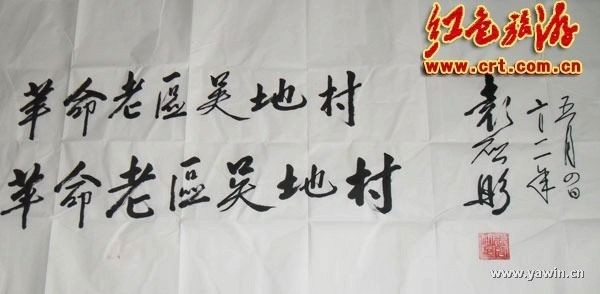 红色旅游
www.crt.com.cn
革命老區吴地村
革命老區吴地村
五月四日
www.yawin.cn